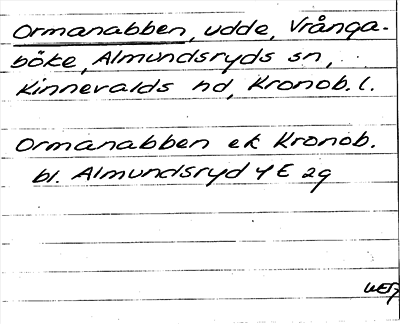 Ormanabben, udde, Vrånga-
böke, Almundsryds sn,
Kinnevalds hd, Kronob. l.
Ormanabben ek Kronob.
bl. Almundsryd 4 E 2g